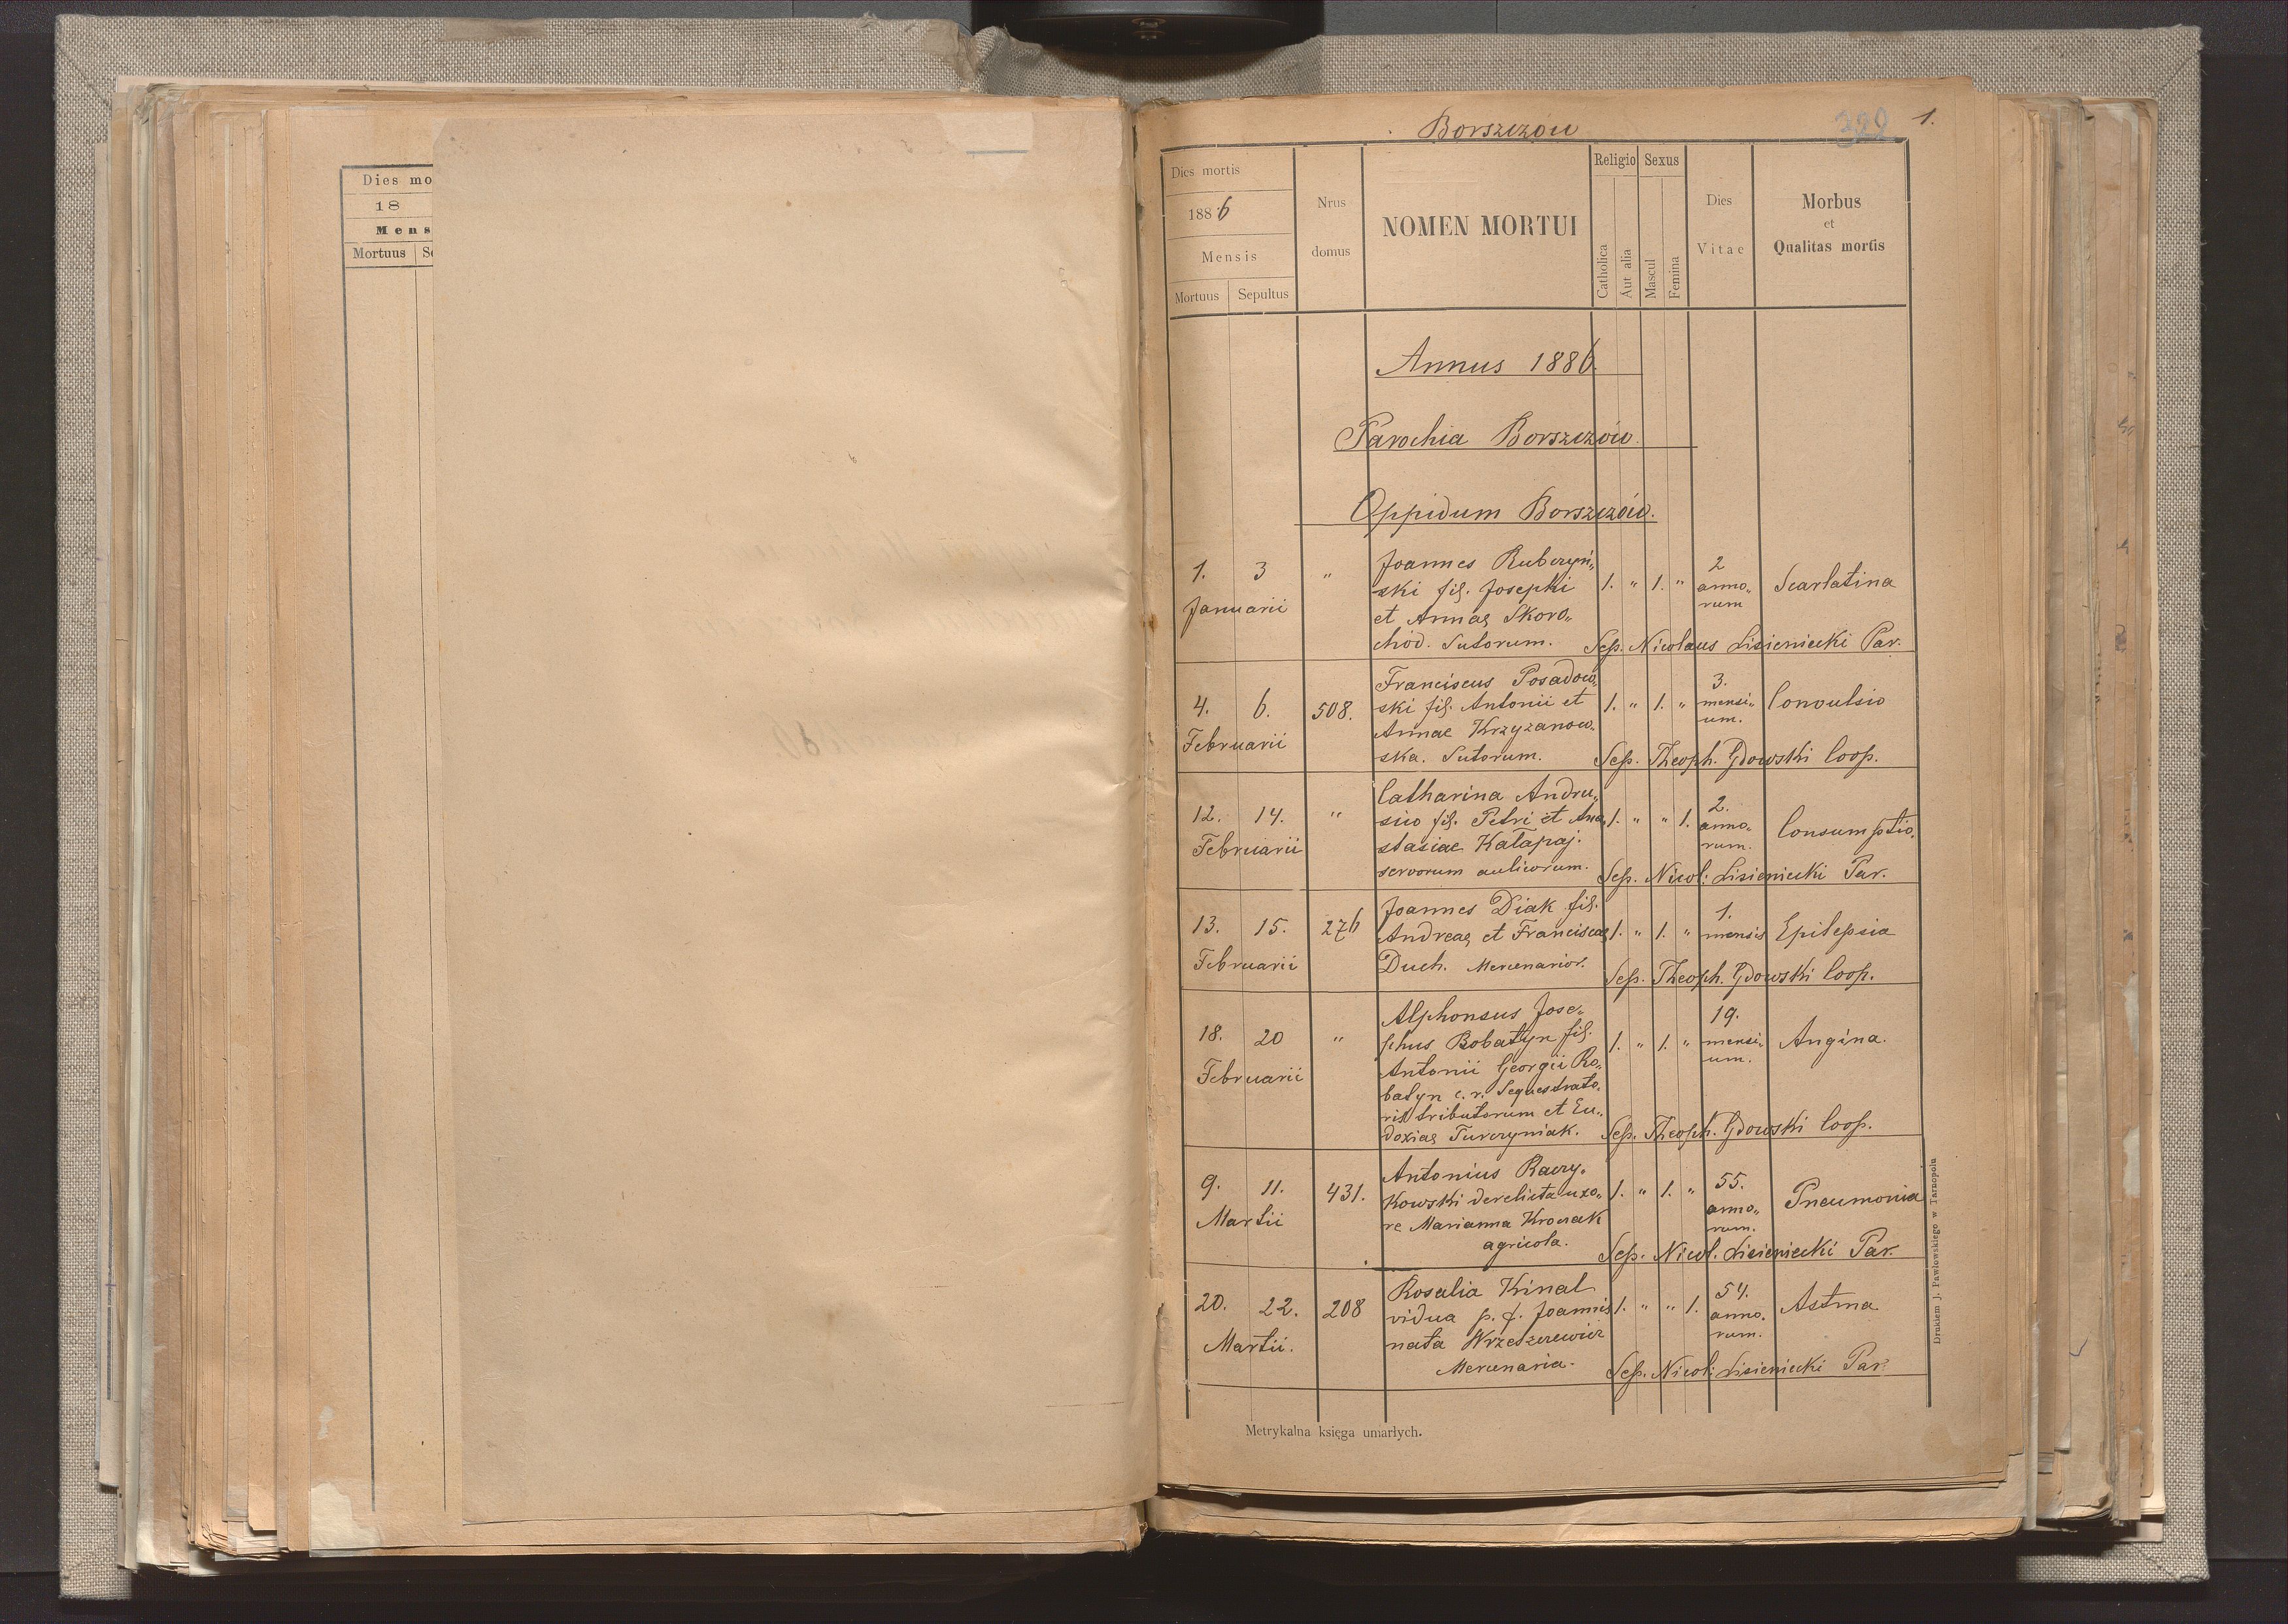 Dies mo
18
Mens
Mortuus
Borszczów
1.
Dies mortis
1886
Mensis
Mortuus Sepultus
Nrus
domus
NOMEN MORTUI
Religio
Catholica
Aut alia
Sexus
Mascul
Femina
Dies
Vitae
Morbus
et
Qualitas mortis
Annus 1886.
Parochia Borszczów.
Oppidum Borszczów.
1. 3 " Joannes Rubczyń„ 1. " 1. " 2 Scarlatina
Januarii ski fil. Josephi anno„
et Annae Skoro„ rum
chód. Sutorum. Sep. Nicolaus Lisieniecki Par.
4. 6. 508. Franciscus Posadow„ 1. " 1. " 3. Convulsio
Februarii ski fil. Antonii et mensi„
Annae Krzyzanow„ um.
ska. Sutorum. Sep. Theoph. Gdowski Coop.
12. 14. " Catharina Andru„ 1. " " 1. 2. Consumptio.
Februarii siw fil. Petri et Ana„ anno„
stasiae Katapaj. rum.
servorum aulicorum. Sep. Nicol: Lisieniecki Par.
13. 15. 276 Joannes Diak fil. 1. " 1. " 1. Epilepsia
Februarii Andreae et Franciscae mensis
Duch. Mercenarior. Sep. Theoph. Gdowski Coop.
18. 20 " Alphonsus Jose„ 1. " 1. " 19. Angina.
Februarii phus Robatyn fil. mensi„
Antonii Georgii Ro„ um.
batyn c. r. Sequestrato„
ris tributorum et Eu„
doxiae Turczyniak. Sep. Theoph. Gdowski Coop.
9. 11. 431. Antonius Raczy„ 1. " 1. " 55. Pneumonia
Martii kowski derelicta uxo„ anno„
re Marianna rum.
agricola. Sep. Nicol. Lisieniecki Par.
20. 22. 208 Rosalia Kinal 1. " " 1. 54. Astma
Martii. vidua p. d. Joannis anno„
nata Wrzeszczewicz rum.
Mercenaria. Sep. Nicol: Lisieniecki Par.
Metrykalna księga umarłych.
Drukiem J. Pawłowskiego w Tarnopolu